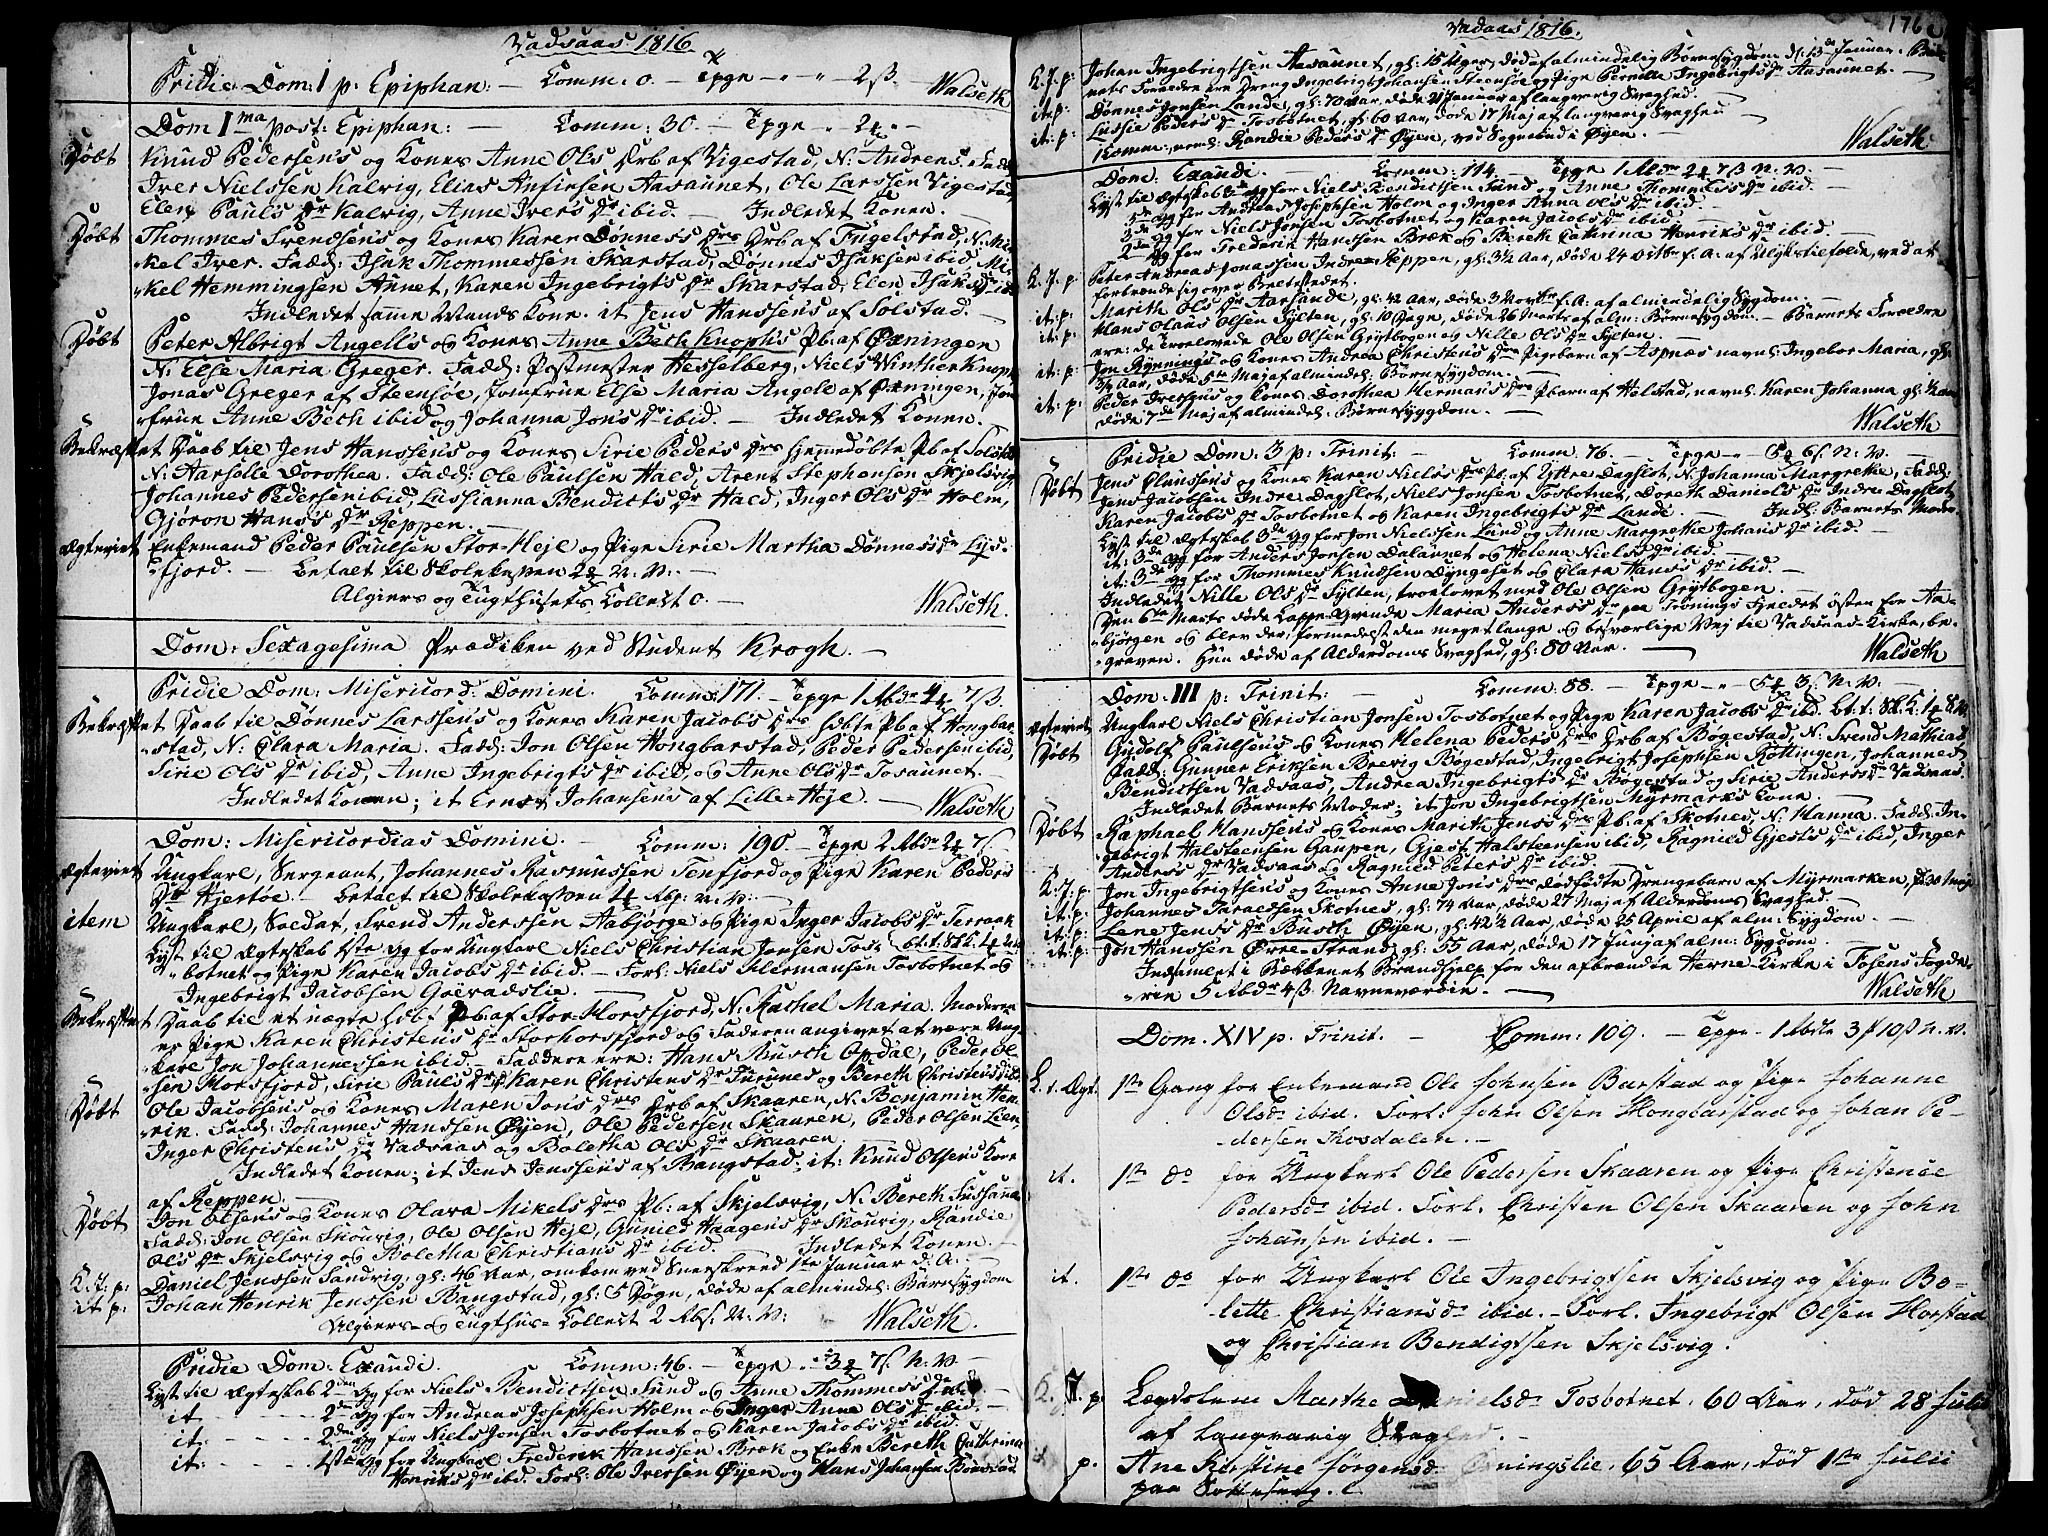 Vadsaas 1816.
Pridie Dom: I p: Epiphan: — Comm: 0. — Tpge — " — " — 2 ß. Walseth
Dom I ma post: Epiphan: — Comm: 30. — Tpge — " 24 " —
Døbt Knud Pedersens og Kones Anne Ols Dr Drb af Vigestad, N: Andreas. Fadd:
Iver Nielssen Kalvig, Elias Anfinsen Aasaunet, Ole Larssen Vigestad,
Elen Pauls Dr Kalvig, Anne Ivers Dr ibid. — Indledet Konen. —
Døbt Thommes Svendsens og Kones Karen Dønness Drs Drb af Fugelstad, N: Mi-
kel Iver. Fadd: Isak Thommessen Skarstad, Dønnes Isaksen ibid, Mi-
kel Hemmingsen Aunet, Karen Ingebrigts Dr Skarstad, Elen Isaks Dr ibid
Indledet samme Mands Kone. it Jens Hanssens af Solstad. —
Døbt Peter Albrigt Angells og Kones Anne Beth Knophs Pb: af Øxningen
N: Else Maria Greger. Fadd: Postmester Hesselberg, Niels Winther Knoph
Jonas Greger af Steensøe, Jomfrue Else Maria Angell af Øxningen, Jom-
frue Anne Beth ibid og Johanna Jons Dr ibid. — Indledet Konen. —
Bekræftet Daab til Jens Hanssens og Kones Sirie Peders Drs hjemmedøbte Pb af Solstad
N: Aarsolle Dorothea. Fadd: Ole Paulsen Hald, Arent Stephansen Skjelsvig,
Johannes Pedersen ibid, Lussianna Bendicts Dr Hald, Inger Ols Dr Holm,
Gjøron Hans's Dr Reppen. —
Ægteviet Enkemand Peder Paulsen Stor-Heje og Pige Sirie Martha Dønness Dr Lys-
fjord. — betalt til Skolekassen 24 N: V: —
Algiers og Tugthusets Collect 0. — Walseth.
Dom: Sexagesima Prædiken ved Student Krogh. —
Pridie Dom: Misericord: Domini. Comm: 171. — Tpge 1 Rbdr 44 7 ß.
Bekræftet Daab til Dønnes Larssens og Kones Karen Jacobs Drs hdbte Pb af Hongbar-
stad, N: Clara Maria. Fadd: Jon Olsen Hongbarstad, Peder Pedersen ibid,
Sirie Ols Dr ibid, Anne Ingebrigts Dr ibid, og Anne Ols Dr Tosaunet. —
Indledet Konen; it Ernst Johansens af Lille-Heje. — Walseth
Dom: Misericordias Domini. — Comm: 190. — Tpge 2 Rbdr 24 7 ß
Ægteviet Ungkarl, Sergeant, Johannes Rasmussen Tenfjord og Pige Karen Peders
Dr Hjertøe. — betalt til Skolekassen 4 Rbß: N: V: —
item Ungkarl, Soldat, Svend Anderssen Aabjørge og Pige Inger Jacobs Dr Terraak
Lyst til Ægteskab 1ste Gg for Ungkarl Niels Christian Jonsen Tos-
botnet og Pige Karen Jacobs Dr ibid. — Forl: Niels Hermansen Tosbotnet og
Ingebrigt Jacobsen Goivadslie. —
Bekræftet Daab til et uægte hdbt Pb: af Stor-Horsfjord, N: Rachel Maria. Moderen
er Pige Karen Christens Dr Storhorsfjord og Faderen angivet at være Ung-
karl Jon Johannessen ibid. — Faddere ere: Hans Busch Opdal, Peder Ol-
sen Horsfjord, Sirie Pauls Dr Karen Christens Dr og Bereth Christens Dr ibid
Døbt Ole Jacobsens og Kones Maren Jons Drs Drb af Skaaren, N: Benjamin Hen-
rik. Fadd: Johannes Hanssen Øyen, Ole Pedersen Skaaren, Peder Olsen Lien,
Inger Christens Dr Vadsaas og Boletha Ols Dr Skaaren. —
Indledet Konen; it Jens Jenssens af Bangstad; it: Knud Olsens Kone
af Reppen.
Døbt Jon Olsens og Kones Olava Mikels Drs Pb: af Skjelsvig, N: Bereth Sussanna
Fadd: Jon Olsen Skourig, Ole Olsen Heje, Gunild Haagens Dr Skourig, Randie
Ols Dr Skjelsvig og Boletha Christians Dr ibid. Indledet Konen. —
K. J: p: Daniel Jenssen Sandvig, gl: 46 Aar, omkom ved Sneeskreed 1ste Januar d: A. —
it p: Johan Henrik Jenssen Bangstad, gl: 5 Døgn, døde af almindel: Børnesygdom
Algiers- og Tugthus- Collect 2 Rbß: N: V: Walseth.
Pridie Dom: Exaudi. Comm: 46. — Tpge " 34 7 ß. N: V. —
Lyst til Ægteskab 2den Gg for Niels Bendictsen Sund og Anne Thommess Dr ibid. —
it — 2den Gg for Andreas Josephsen Holm og Inger Anne Ols Dr ibid; —
it: — 2den Gg, for Niels Jonsen Tosbotnet og Karen Jacobs Dr ibid.
it: — 1ste Gg for Ungkarl Frederik Hanssen Bræk og Enke Bereth Cathrina
Henriks Dr ibid. Forl: Ole Iverssen Øyen og Hans Johansen
Vadsaas 1816. 176
K. J. p: Johan Ingebrigtsen Aasaunet, gl: 15 Uger, døde af almindelig Børnesygdom d: 13de Januar. Bar-
nets Forældre ere Dreng Ingebrigt Johansen Steensøe og Pige Pernille Ingebrigts Dr Aasaunet. —
it p: Dønnes Jonsen Lande, gl: 70 Aar, døde 21 Januar af langvarig Svaghed. —
it: p: Lussie Peders Dr Tosbotnet, gl: 60 Aar, døde 17 Maj af langvarig Svaghed
Komm: nemd: Randie Peders Dr Øyen, ved Sognebud i Øyen. — Walseth.
Dom: Exaudi. — Comm: 114. — Tpge 1 Rbdr 24 7 ß N: V:
Lyst til Ægteskab 3de Gg for Niels Bendictsen Sund og Anne Thommess Dr ibid.
3de Gg for Andreas Josephsen Holm og Inger Anna Ols Dr ibid. —
3de Gg for Niels Jonsen Tosbotnet og Karen Jacobs Dr ibid. —
2den Gg for Frederik Hanssen Bræk og Bereth Cathrina Henriks Dr ibid. —
K. J. p. Peter Andreas Jonassen Indre-Reppen, gl: 3½ Aar, døde 24 Octbr f: A: af Ulykkestilfælde, ved at
forbrænde sig over Beltestedet.
it: p: Marith Ols Dr Aarsande, gl: 42 Aar, døde 3 Novbr f. A: af almindelig Sygdom. —
it: p: Hans Olaus Olsen Sylten, gl: 10 Dage, døde 26 Marts af alm: Børnesygdom. — Barnets Forældre
ere: de trolovede Ole Olsen Grytbogen og Nille Ols Dr Sylten. —
it: p: Jon Rynnings og Kones Andrea Christens Drs Pigebarn af Aspnæs navnl: Ingebor Maria, gl:
Aar, døde 5te Maj af almindel: Børnesygdom. —
it: p: Peder Iverssens og Kones Dorothea Hermans Drs Pbarn af Helstad, navnl: Karen Johanna gl:
døde 7de Maj af almindel: Børnesygdom. — Walseth
Pridie Dom: 3 p: Trinit: — Comm: 76. — Tpge — " 6 ß N: V: —
Døbt Jens Clausens og Kones Karen Niels's Drs Pb: af Yttre Dagslot, N: Johanna Margrethe. Fadd:
Jens Jacobsen Indre Dagslot, Niels Jonsen Tosbotnet, Doreth Daniels Dr Indre Dagslot
Karen Jacobs Dr Tosbotnet og Karen Ingebrigts Dr Lande. — Indl: Barnets Moder
Lyst til Ægteskab 3de Gg for Jon Nielssen Lund og Anne Margrethe Johans Dr ibid. —
it: 3de Gg for Anders Jonsen Dalaunet og Helena Niels's Dr ibid. —
it: 3de Gg for Thommes Knudsen Dyngeset og Clara Hans's Dr ibid. —
Indledet Nille Ols Dr Sylten, troelovet med Ole Olsen Grytbogen.
Den 6te Marts døde Lappe Qvinde Maria Anders's Dr paa Tronings Fjeldet østen for Aa-
bjørgen og blev der, formedelst den meget lange og besværlige Vej til Vadsaas-Kirke, be-
graven. Hun døde af Alderdoms Svaghed, gl: 80 Aar. — Walseth
Dom. III p: Trinit: — Comm: 88. — Tpge — " 54 3 ß N: V: —
Ægteviet Ungkarl Niels Christian Jonsen Tosbotnet og Pige Karen Jacobs Dr ibid.
Døbt Gudolf Paulsens og Kones Helena Peders Drs Drb af Bøgestad, N: Svend Mathias
Fadd: Gunner Eriksen Brevig Bøgestad, Ingebrigt Josephsen Røttingen, Johannes
Bendictsen Vadsaas, Andrea Ingebrigts Dr Bøgestad og Sirie Anders's Dr Vadsaas.
Indledet Barnets Moder; it Jon Ingebrigtsen Myrmarks Kone
Døbt Raphael Hanssens og Kones Marith Jens's Drs Pb: af Skotnes, N: Hanna. Fadd: In-
gebrigt Halsteensen Gaupen, Gjest Halsteensen ibid, Ragnild Gjests Dr ibid, Inger
Anders's Dr Vadsaas og Ragnild Peters Dr ibid.
K. J: p: Jon Ingebrigtsens og Kones Anne Jons Drs dødfødte Drengebarn af Myrmarken, fød 30 Maj
it: p: Johannes Taraldsen Skotnes, gl: 74 Aar, døde 27 Maj af Alderdoms Svaghed. —
it: p: Lene Jens's Dr Busch Øyen, gl: 42½ Aar, døde 25 April af alm: Sygdom. —
it: p: Jon Hanssen Øvre-Strand, gl: 55 Aar, døde 17 Junj af alm: Sygdom. —
Indsamlet i Bækkenet Brandhjelp for den afbrændte Herne-Kirke i Fosens Fogde-
rie 5 Rbdr 4 ß Navneværdie. — Walseth
Dom. XIV p. Trinit. — Comm: 109. — Tpge — 1 Rbdr 3 10 ß N. V.
L. t. Ægt. 1ste Gang for Enkemand Ole Johnsen Barstad og Pige Johanne
Olsdr ibid. Forl. John Olsen Hongbarstad og Johan Pe-
dersen Thosdalen. —
it. 1ste do for Ungkarl Ole Pedersen Skaaren og Pige Christense
Pedersdr ibid. Forl. Christen Olsen Skaaren og John
Johansen ibid. —
it. 1ste do for Ungkarl Ole Ingebrigtsen Skjelsvig og Pige Bo-
lette Christiansdr ibid. — Forl. Ingebrigt Olsen Horstad
og Christian Bendigtsen Skjelsvig.
K. J. p. Legdslem Marthe Tosbotnet, 60 Aar, død 28 Juli
af langvarig Svaghed. —
p. Ane Kirstine Jørgensdr 65 Aar, død 1ste Julii
paa